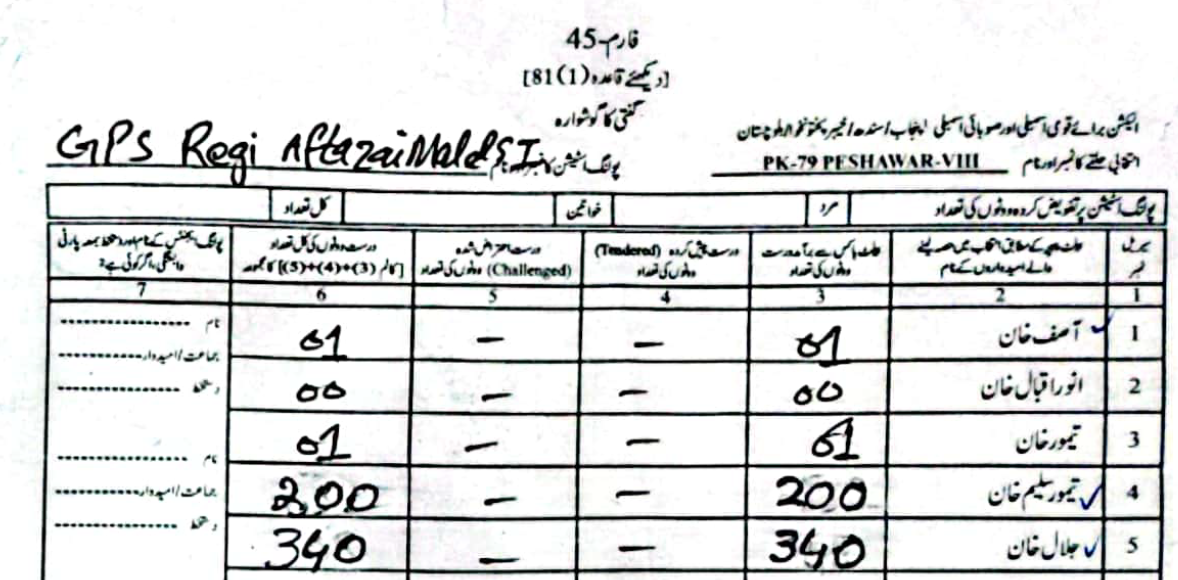 فارم-45
[دیکھئے قاعدہ (1)81]
گنتی کا گوشوارہ
الیکشن برائے قومی اسمبلی اور صوبائی اسمبلی پنجاب/سندھ/خیبر پختونخوا/بلوچستان
انتخابی حلقے کا نمبر اور نام PK-79 PESHAWAR-VIII پولنگ اسٹیشن کا نمبر اور نام GPS Regi Aftazai
پولنگ اسٹیشن پر تفویض کردہ ووٹوں کی تعداد مرد خواتین کل تعداد
سیریل نمبر
حلقے کے مطابق انتخاب میں حصہ لینے والے امیدواروں کے نام
درست پیش کردہ (Tendered) ووٹوں کی تعداد
درست اعتراض شدہ (Challenged) ووٹوں کی تعداد
درست ووٹوں کی کل تعداد [کالم (3)+(4)+(5) کا مجموعہ]
1 2 3 4 5 6 7
1 آصف خان 01 — — 01
نام
جماعت/امیدوار
2 انور اقبال خان 00 — — 00
دستخط
3 تیمور خان 01 — — 01
نام
4 تیمور سلیم خان 200 — — 200
جماعت/امیدوار
دستخط
5 جلال خان 340 — — 340